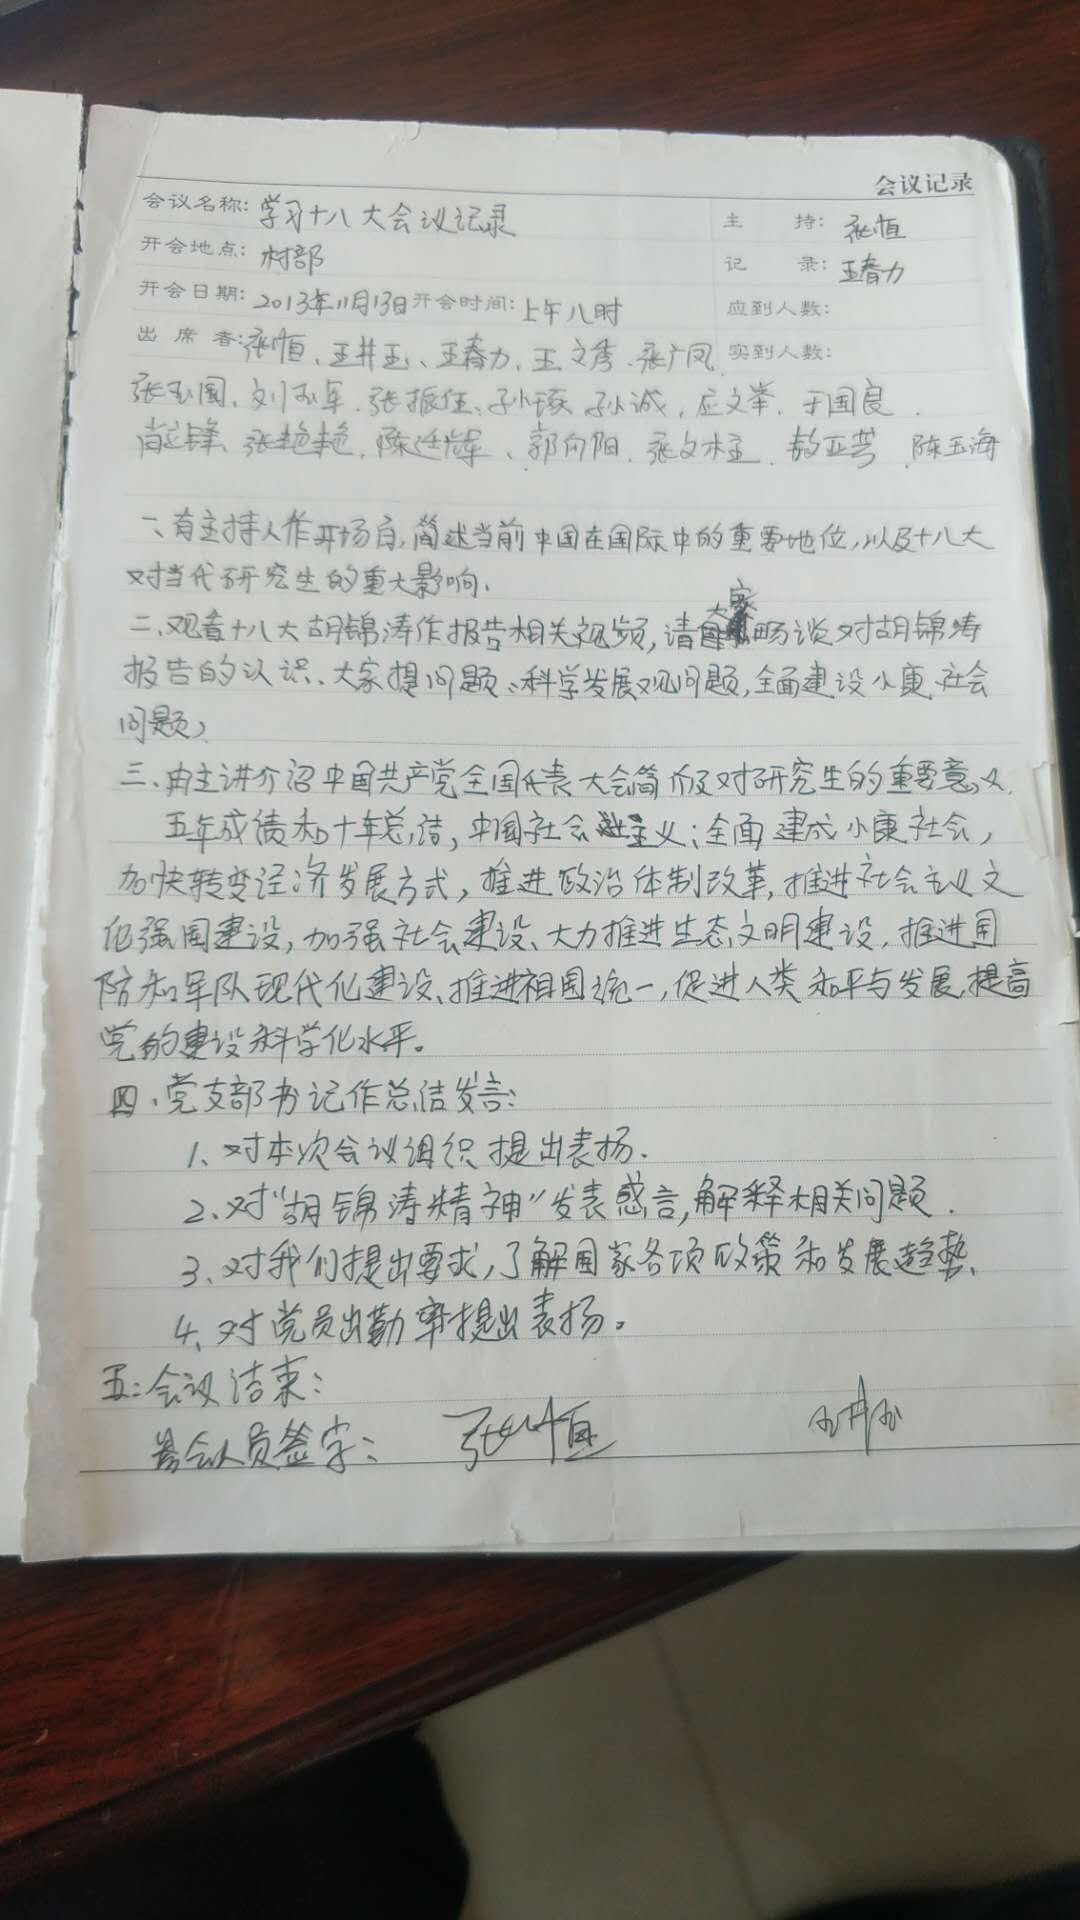 会议记录
会议名称: 学习十八大会议记录 主 持: 张恒
开会地点: 村部 记 录: 王春力
开会日期: 2013年11月13日 开会时间: 上午八时 应到人数:
出 席 者: 张恒、王井玉、王春力、王文秀、张广凤 实到人数:
张玉国、刘玉军、张振伍、孙琢、孙诚、应文举、于国良
肖锋、张艳艳、陈廷辉、郭向阳、张文柱、敖亚芩、陈玉海
一、有主持人作开场白,简述当前中国在国际中的重要地位,以及十八大
对当代研究生的重大影响.
二、观看十八大胡锦涛作报告相关视频,请大家畅谈对胡锦涛
报告的认识、大家提问题、科学发展观问题,全面建设小康社会
问题,
三、由主讲介绍中国共产党全国代表大会简介及对研究生的重要意义.
五年成绩和十年总结,中国社会主义;全面建成小康社会,
加快转变经济发展方式,推进政治体制改革,推进社会主义文
化强国建设,加强社会建设、大力推进生态文明建设,推进国
防和军队现代化建设、推进祖国统一,促进人类和平与发展,提高
党的建设科学化水平。
四、党支部书记作总结发言:
1、对本次会议组织提出表扬.
2、对“胡锦涛精神”发表感言,解释相关问题.
3、对我们提出要求,了解国家各项政策和发展趋势、
4、对党员出勤率提出表扬。
五:会议结束:
会人员签字: 张恒 王井玉